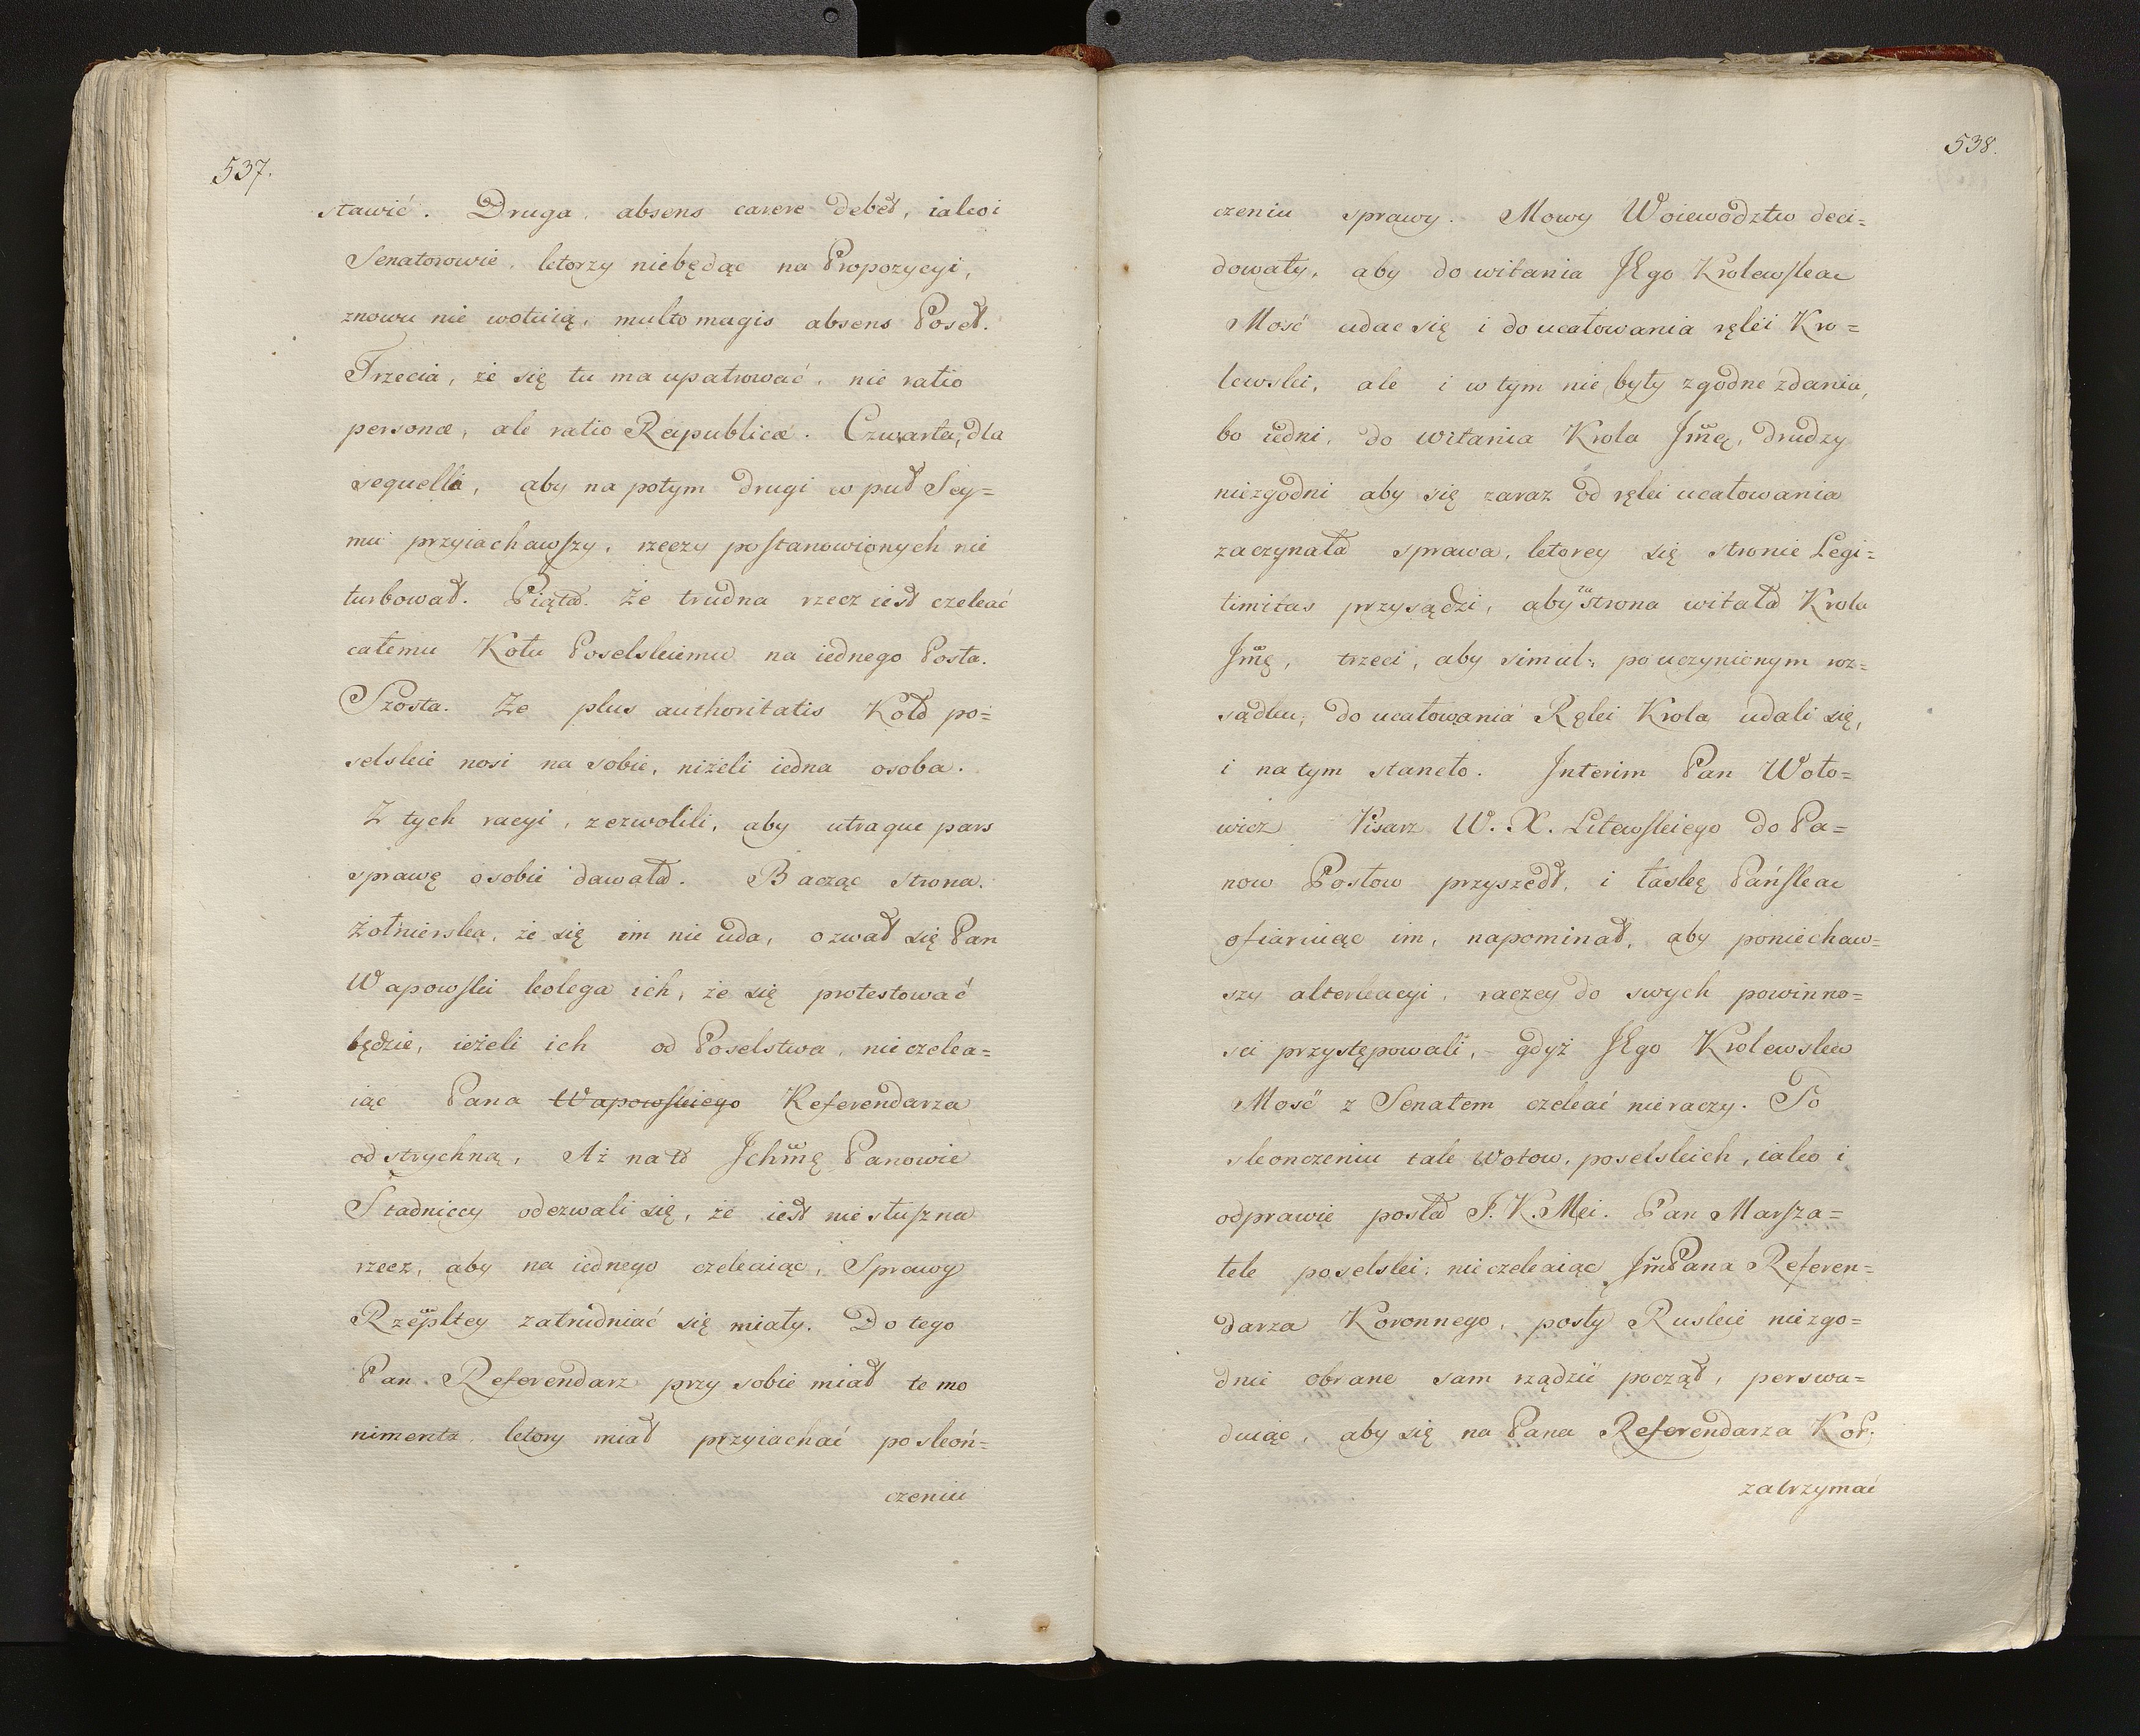 537.
stawić. Druga, absens carere debet, iako i
Senatorowie, ktorzy niebędąc na Propozycyi,
znowu nie wotuią, multo magis absens Poseł.
Trzecia, że się tu ma upatrować, nie ratio
personæ, ale ratio Reipublicæ. Czwarta, dla
sequelli, aby na potym drugi w puł Sey=
mu przyiachawszy, rzeczy postanowionych nie
turbował. Piąta. Że trudna rzecz iest czekać
całemu Kołu Poselskiemu na iednego Posła.
Szosta. Ze plus authoritatis Koło po=
selskie nosi na sobie, niżeli iedna osoba.
Z tych racyi, zezwolili, aby utraque pars
sprawę o sobie dawała. Bacząc strona
Żołnierska, że się im nie uda, ozwał się Pan
Wapowski kolega ich, że się protestować
będzie, ieżeli ich od Poselstwa, nie czeka=
iąc Pana Wapowskiego Referendarza
odstrychną, Aż na to Jchmę Panowie
Stadniccy odezwali się, że iest niesłuszna
rzecz, aby na iednego czekaiąc, Sprawy
Rzepltey zatrudniać się miały. Do tego
Pan Referendarz przy sobie miał te mo
nimenta, ktory miał przyiachać po skoń=
czeniu
538.
czeniu sprawy. Mowy Woiewodztw deci=
dowały, aby do witania JEgo Krolewska
Mość udac się i do ucałowania ręki Kro=
lewski, ale i w tym nie były zgodne zdania,
bo iedni, do witania Krola Jmę, drudzy
niezgodni aby się zaraz od ręki ucałowania
zaczynała sprawa, ktorey się stronie Legi=
timitas przysądzi, aby ta strona witała Krola
Jmę, trzeci, aby simul, po uczynionym roz=
sądku, do ucałowania Ręki Krola udali się,
i na tym staneło. Interim Pan Woło=
wicz Pisarz W. X. Litewskiego do Pa=
now Posłow przyszedł, i łaskę Pańska
ofiaruiąc im, napominał, aby poniechaw=
szy alterkacyi, raczey do swych powinno=
sci przystępowali, gdyż JEgo Krolewska
Mosć z Senatem czekać nie raczy. Po
skonczeniu tak Wotow, poselskich, iako i
odprawie posła J. K. Mci. Pan Marsza=
łek poselski, nieczekaiąc Jm Pana Referen=
darza Koronnego, posły Ruskie niezgo=
dnie obrane sam rządzić począł, perswa=
duiąc, aby się na Pana Referendarza Kor.
zatrzymać